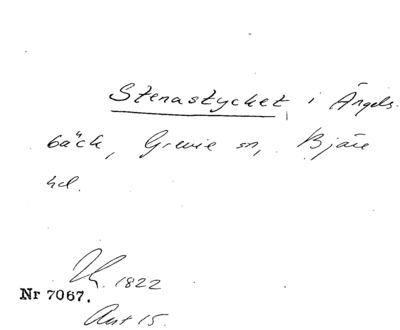 Stenastycket i Ängels-
bäck, Grevie sn, Bjäre
hd.
1822
Nr 7067.
Akt 15.